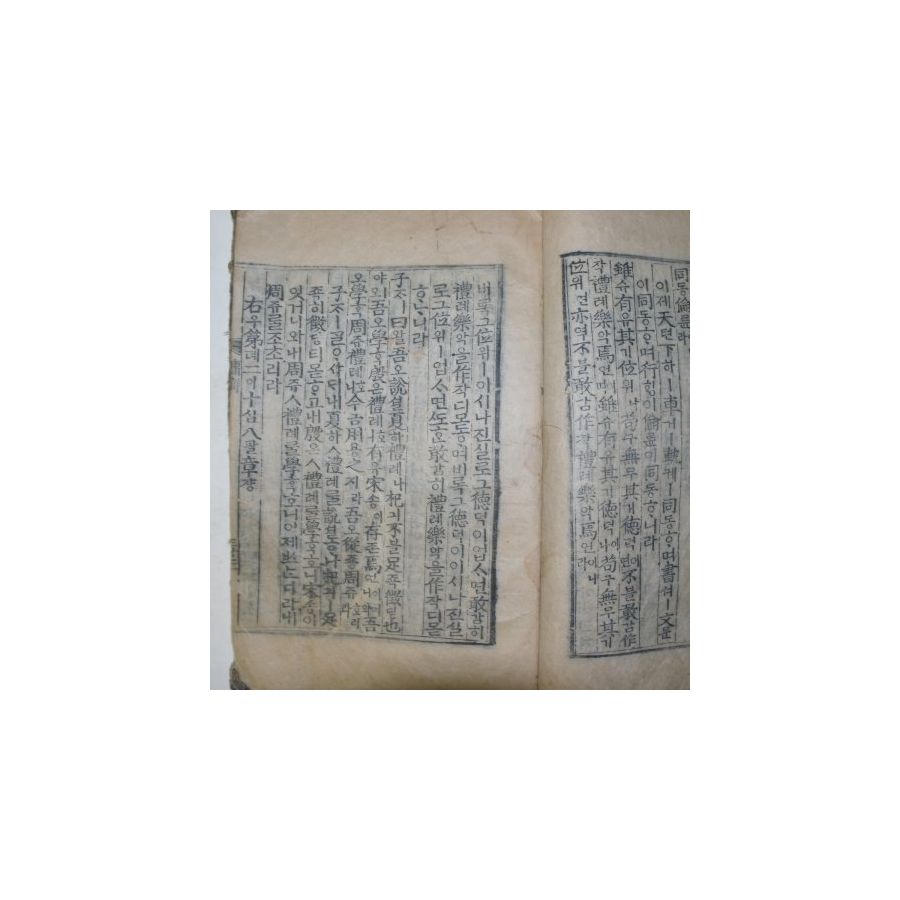 同동倫륜라
이제天텬下하ㅣ車거ㅣ軌궤ㅣ同동ᄒᆞ며書셔ㅣ文문
이同동ᄒᆞ며行ᄒᆡᆼ이倫륜이同동ᄒᆞ니라
雖슈有유其기位위나苟구無무其기德덕이면不블敢감作
작禮례樂악焉언이며雖슈有유其기德덕이나苟구無무其기
位위면亦역不블敢감作작禮례樂악焉언이니라
비록그位위ㅣ이시나진실로그德덕이업스면敢감히
禮례樂악을作작디몯ᄒᆞ며비록그德덕이이시나진실
로그位위ㅣ업스면ᄯᅩ敢감히禮례樂악을作작디몯
ᄒᆞᄂᆞ니라
子ᄌᆞㅣ曰왈吾오說셜夏하禮례나杞긔不블足죡徵딩也
야ㅣ오吾오學ᄒᆞᆨ殷은禮례호니有유宋송이存존焉언이어니와吾
오學ᄒᆞᆨ周쥬禮례호니今금用용之지라吾오從죵周쥬호리라
子ᄌᆞㅣᄀᆞᆯᄋᆞ샤ᄃᆡ내夏하ㅅ禮례ᄅᆞᆯ說셜ᄒᆞ나杞긔ㅣ足
죡히徵딩티몯ᄒᆞ고내殷은ㅅ禮례ᄅᆞᆯ學ᄒᆞᆨ호니宋송이
잇거니와내周쥬ㅅ禮례ᄅᆞᆯ學ᄒᆞᆨ호니이제ᄡᅳᄂᆞᆫ디라내
周쥬ᄅᆞᆯ조초리라
右우第뎨二이十십八팔章쟝